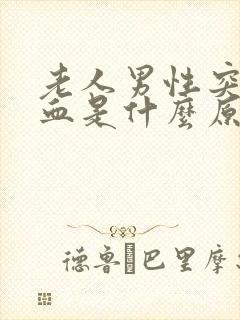 老人男性突
血是什麼原
德鲁 巴里摩